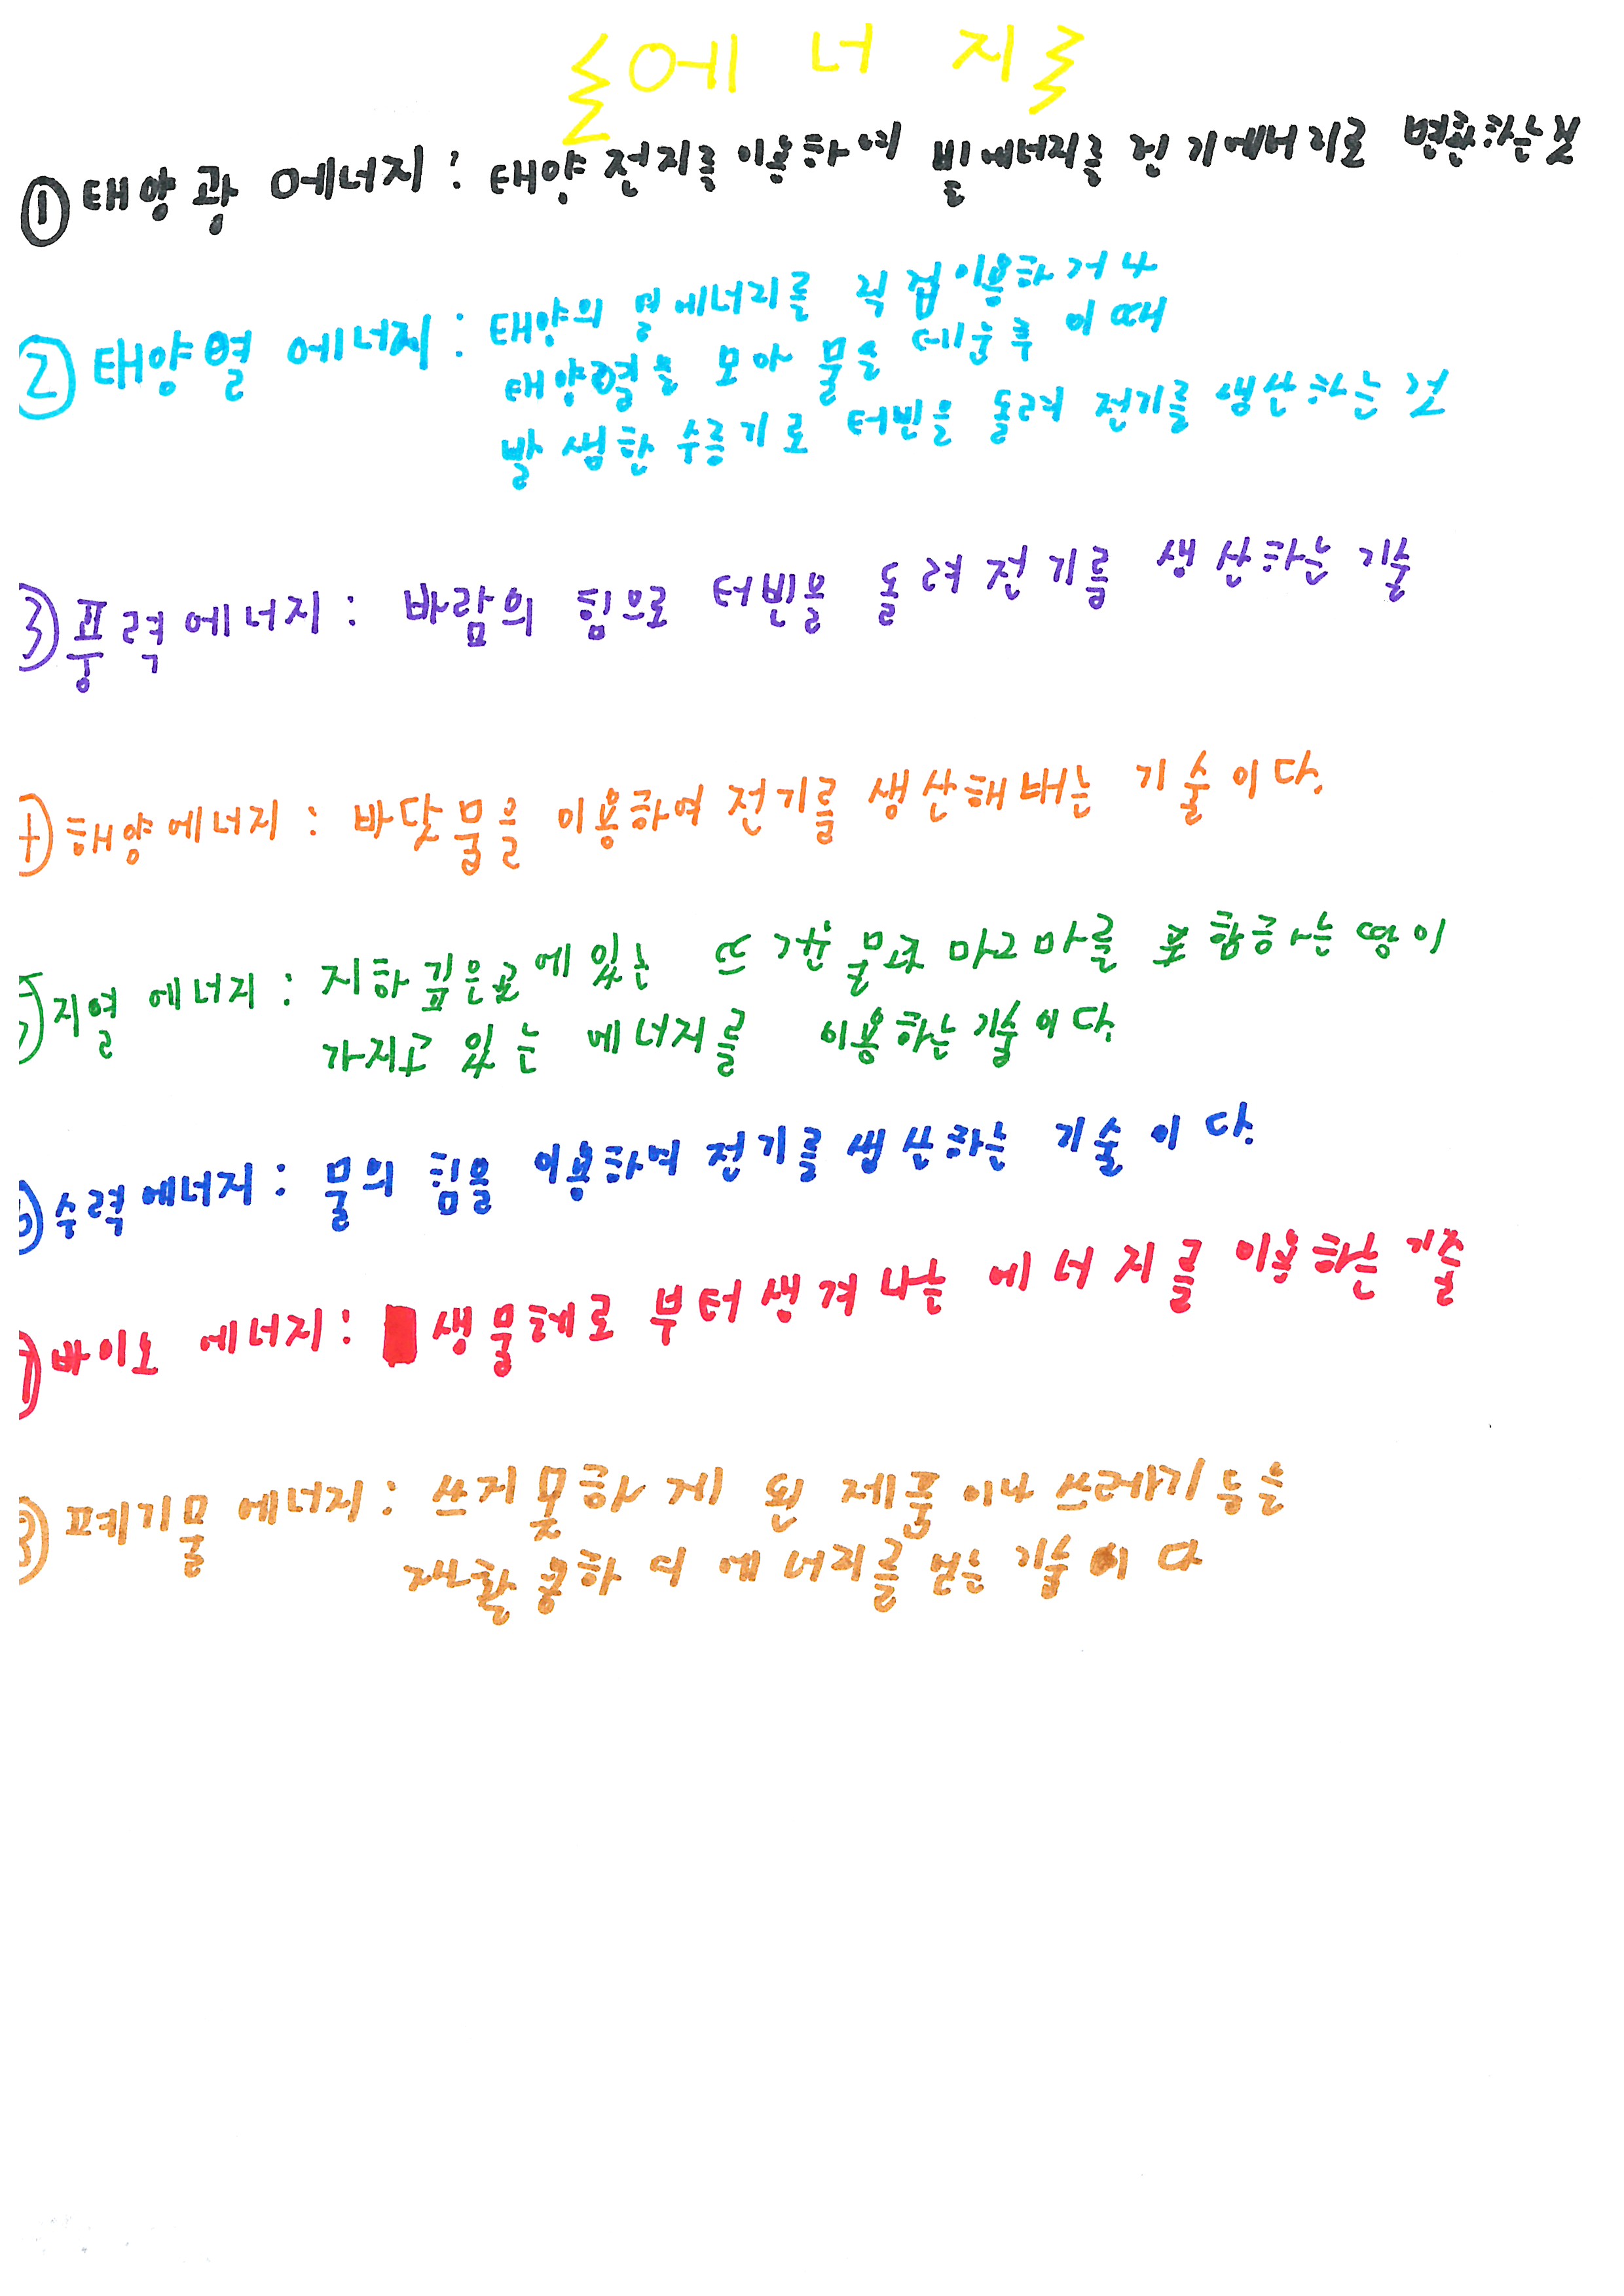 에너지
① 태양광 에너지 : 태양전지를 이용하여 빛에너지를 전기에너지로 변환하는것
② 태양열 에너지 : 태양의 열에너지를 직접이용하거나
태양열을 모아 물을 데운후 이때
발생한 수증기로 터빈을 돌려 전기를 생산하는 것
③ 풍력에너지 : 바람의 힘으로 터빈을 돌려 전기를 생산하는 기술
④ 해양에너지 : 바닷물을 이용하여 전기를 생산해내는 기술이다.
⑤ 지열 에너지 : 지하 깊은곳에 있는 뜨거운 물과 마그마를 포함하는 땅이
가지고 있는 에너지를 이용하는 기술이다.
⑥ 수력에너지 : 물의 힘을 이용하여 전기를 생산하는 기술이다.
⑦ 바이오 에너지 : 생물체로 부터 생겨나는 에너지를 이용하는 기술
⑧ 폐기물 에너지 : 쓰지못하게 된 제품이나 쓰레기 등을
재활용하여 에너지를 얻는 기술이다